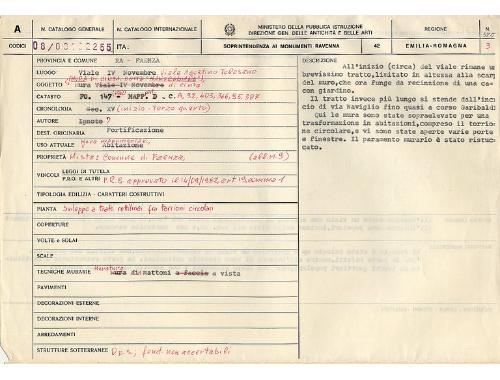 A
N. CATALOGO GENERALE
N. CATALOGO INTERNAZIONALE
MINISTERO DELLA PUBBLICA ISTRUZIONE
DIREZIONE GEN. DELLE ANTICHITÀ E DELLE ARTI
REGIONE
N.
CODICI
08/00
ITA:
SOPRINTENDENZA AI MONUMENTI RAVENNA
42
EMILIA-ROMAGNA
3
PROVINCIA E COMUNE RA - FAENZA
LUOGO: Viale IV Novembre, Viale Agostino
OGGETTO: Mura Viale IV Novembre di cinta
CATASTO FO. 147 - MAPP. D - C
CRONOLOGIA Sec. XV (inizio - terzo quarto)
AUTORE Ignoto ?
DEST. ORIGINARIA Fortificazione
USO ATTUALE Abitazione
PROPRIETÀ Mista: Comune di Faenza (all. n. 9)
VINCOLI
LEGGI DI TUTELA
P.R.G. E ALTRI P.R.G. approvato il
TIPOLOGIA EDILIZIA - CARATTERI COSTRUTTIVI
PIANTA Sviluppo a tratti rettilinei fra torrioni circolari
COPERTURE
VOLTE o SOLAI
SCALE
TECNICHE MURARIE Mura di mattoni a faccia a vista
PAVIMENTI
DECORAZIONI ESTERNE
DECORAZIONI INTERNE
ARREDAMENTI
STRUTTURE SOTTERRANEE fond. non accertabili
DESCRIZIONE
All'inizio (circa) del viale rimane u
brevissimo tratto, limitato in altezza alla scarp
del muro, che ora funge da recinzione di una ca
con giardino.
Il tratto invece più lungo si stende dall'inc
cio di via Naviglio fino quasi a corso Garibaldi
Qui le mura sono state sopraelevate per una
trasformazione in abitazioni, compreso il torrio
ne circolare, e vi sono state aperte varie porte
e finestre. Il paramento murario è stato ristuc
cato.